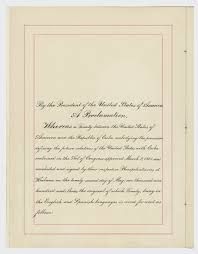 By the President of the United States of America
A Proclamation.
Whereas a Treaty between the United States of
America and the Republic of Cuba embodying the provisions
defining the future relations of the United States with Cuba
contained in the Act of Congress approved March 2, 1901, was
concluded and signed by their respective Plenipotentiaries at
Habana on the twenty-second day of May, one thousand nine
hundred and three, the original of which Treaty, being in
the English and Spanish languages is word for word as
follows: